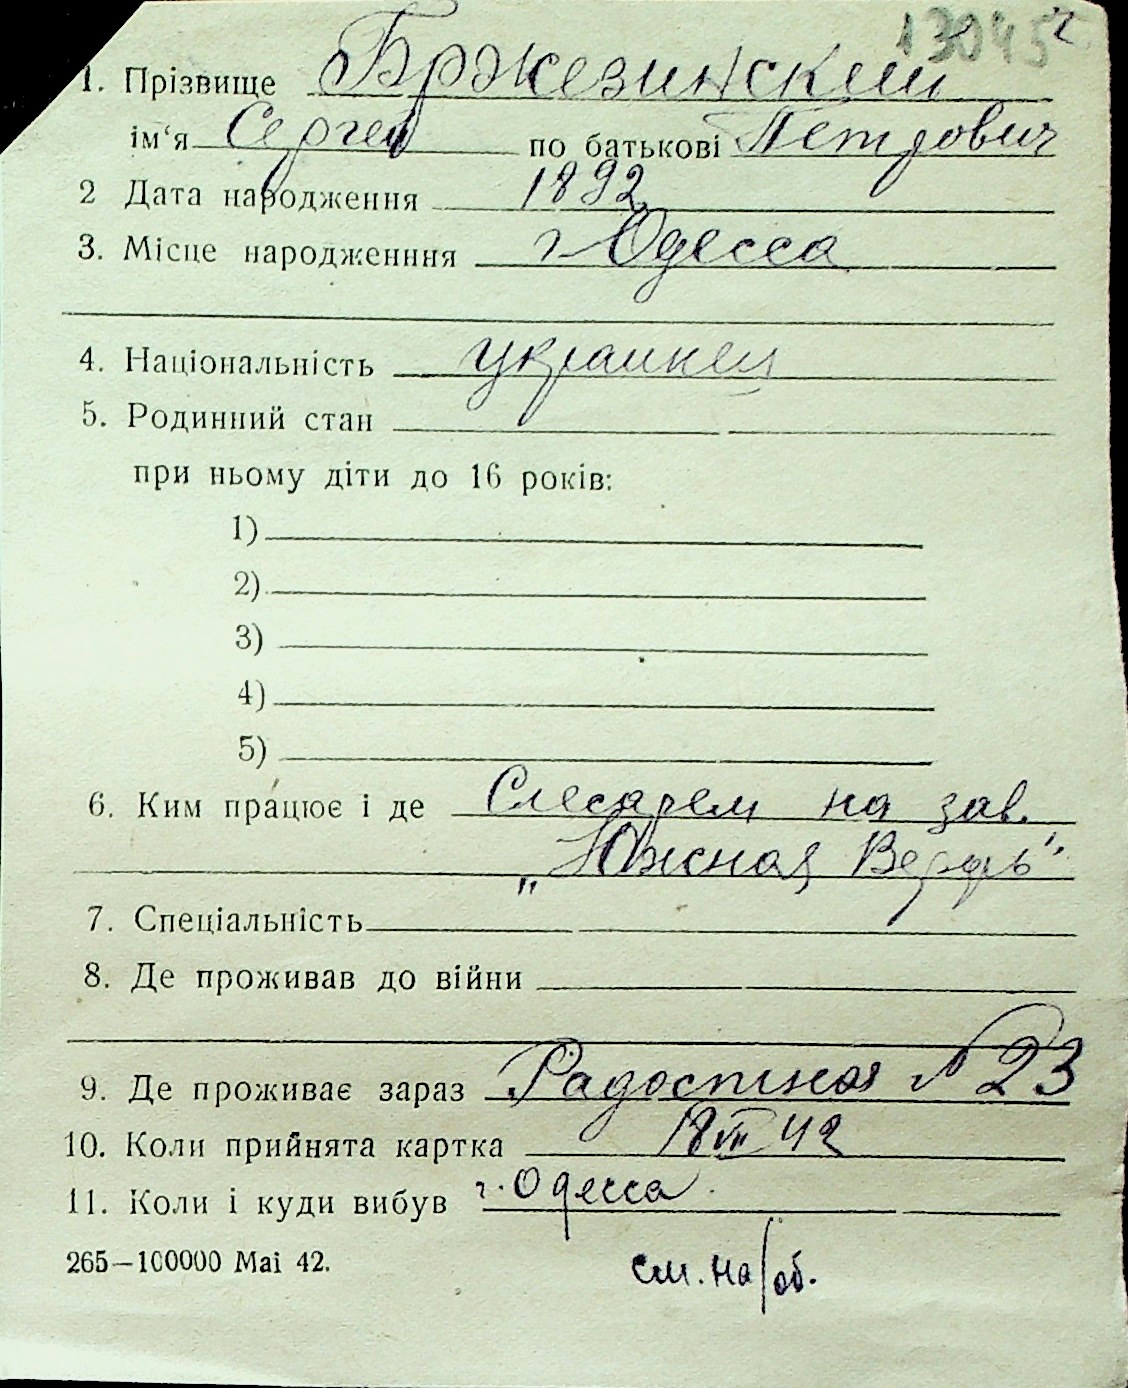 13045
1. Прізвище Бржезинский
ім‘я Сергей по батькові Петрович
2 Дата народження 1892
3. Місце народженння г. Одесса
4. Національність украинец
5. Родинний стан
при ньому діти до 16 років:
1)
2)
3)
4)
5)
6. Ким працює і де Слесарем на зав.
„Южная Верфь“
7. Спеціальність
8. Де проживав до війни
9. Де проживає зараз Радостная № 23
10. Коли прийнята картка 18 VII 42
11. Коли і куди вибув г. Одесса.
265—100000 Маі 42.
см. на/об.